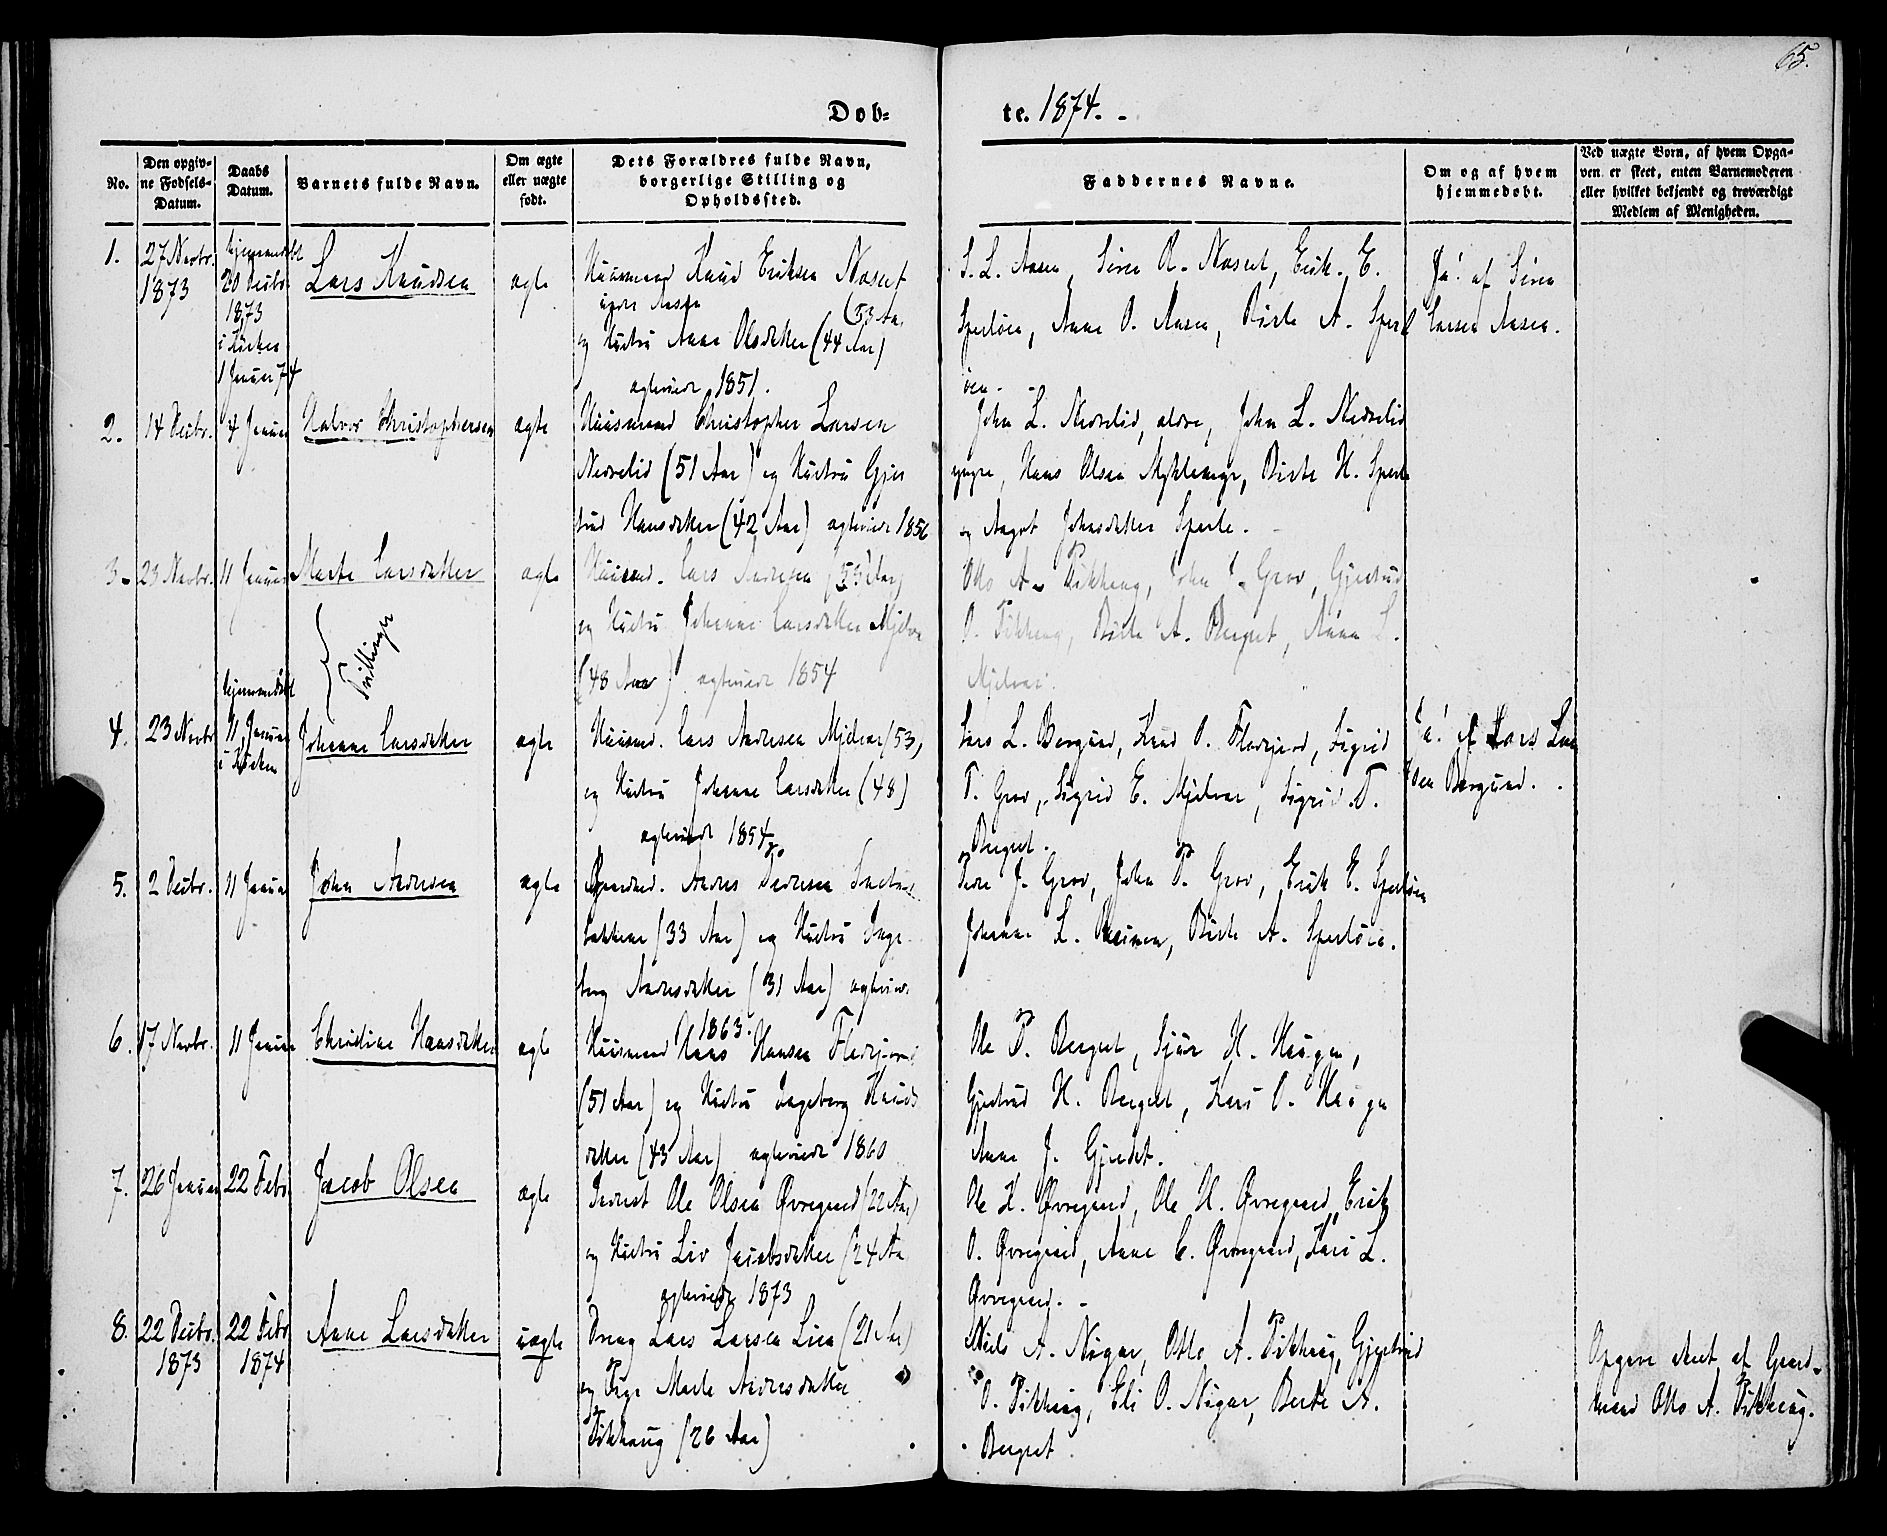 65.
Døb=
te. 1874. -
No.
Den opgiv-
ne Fødsels-
Datum.
Daabs
Datum.
Barnets fulde Navn.
Om ægte
eller uægte
født.
Dets Forældres fulde Navn,
borgerlige Stilling og
Opholdssted.
Faddernes Navne.
Om og af hvem
hjemmedøbt.
Ved uægte Børn, af hvem Opga-
ven er skeet, enten Barnemoderen
eller hvilket bekjendt og troværdigt
Medlem af Menigheden.
1.
27 Novbr.
1873
hjemmedøbt
20 Decbr.
1873
i Kirken
1 Januar 74
Lars Knudsen
ægte
Huusmand Knud Eriksen Naset
under Aasen (53 Aa.
og Hustru Anne Olsdatter (44 Aar)
ægteviede 1851.
S. L. Aasen, Siren O. Naset, Erik E.
Sperløen, Anne O. Aasen, Birte A. Sperl
øen. -
Ja! af Siren
Larsen Aasen.
2.
14 Decbr.
4 Januar
Halvor Christophersen
ægte
Huusmand Christopher Larsen
Nedrelid (51 Aar) og Hustru Gjer
trud Hansdatter (42 Aar) ægteviede 1856
John L. Nedrelid, ældre, John L. Nedrelid
yngre, Hans Olsen Myklemyr, Birte H. Sperle
og Aagot Johnsdatter Sperle. -
3.
23 Novbr.
11 Januar
Marte Larsdatter
Tvillinger
ægte
Huusmd. Lars Andersen (53 Aar)
og Hustru Johanne Larsdatter Mjelvær
(48 Aar) ægteviede 1854
Otto A. Tikhaug, John T. Grov, Gjertrud
O. Tikhaug, Birte A. Berget, Anna L.
Mjelvær.
4.
23 Novbr
hjemmedøbt
11 Januar
i Kirken
Johanne Larsdatter
ægte
Huusmd. Lars Andersen Mjelvær (53)
og Hustru Johanne Larsdatter (48)
ægteviede 1854.
Lars L. Borgund, Knud O. Flahjord, Sigrid
T. Grov, Sigrid E. Mjelvær, Sigrid T.
Berget.
Ja! af Lars Lar
sen Borgund.
5.
2 Decbr.
11 Januar
John Andersen
ægte
Anders Pedersen
(33 Aar) og Hustru Inge
borg Andersdatter (31 Aar) ægteviede
1863.
Peder J. Grov, John P. Grov, Erik E. Sperløen
Johanne L. Birte A. Sperløen.
6.
17 Novbr.
11 Januar
Christine Hansdatter
ægte
Huusmand Hans Hansen Flahjord
(51 Aar) og Hustru Ingeborg Knuds
datter (43 Aar) ægteviede 1860
Ole P. Berget, Sjur H. Haugen,
Gjertrud H. Berget, Kari O. Haugen
Anne J. Gjerdet.
7.
26 Januar
22 Febr
Jacob Olsen
ægte
Inderst Ole Olsen Øvregaard (22 Aar)
og Hustru Liv Jacobsdatter (24 Aa
ægteviede 1873
Ole K. Øvregaard, Ole H. Øvregaard, Erik
O. Øvregaard, Anne C. Øvregaard, Kari L.
Øvregaard. -
8.
22 Decbr.
1873
22 Febr
1874
Anne Larsdatter
uægte
Dreng Lars Larsen Lien (21 Aar)
og Pige Marte Andersdatter
Tikhaug (26 Aar)
Niels A. Nigar, Otto A. Tikhaug, Gjertrud
O. Tikhaug, Eli O. Nigar, Berte A.
Berget
Opgave skeet af Gaard-
mand Otto A. Tikhaug.